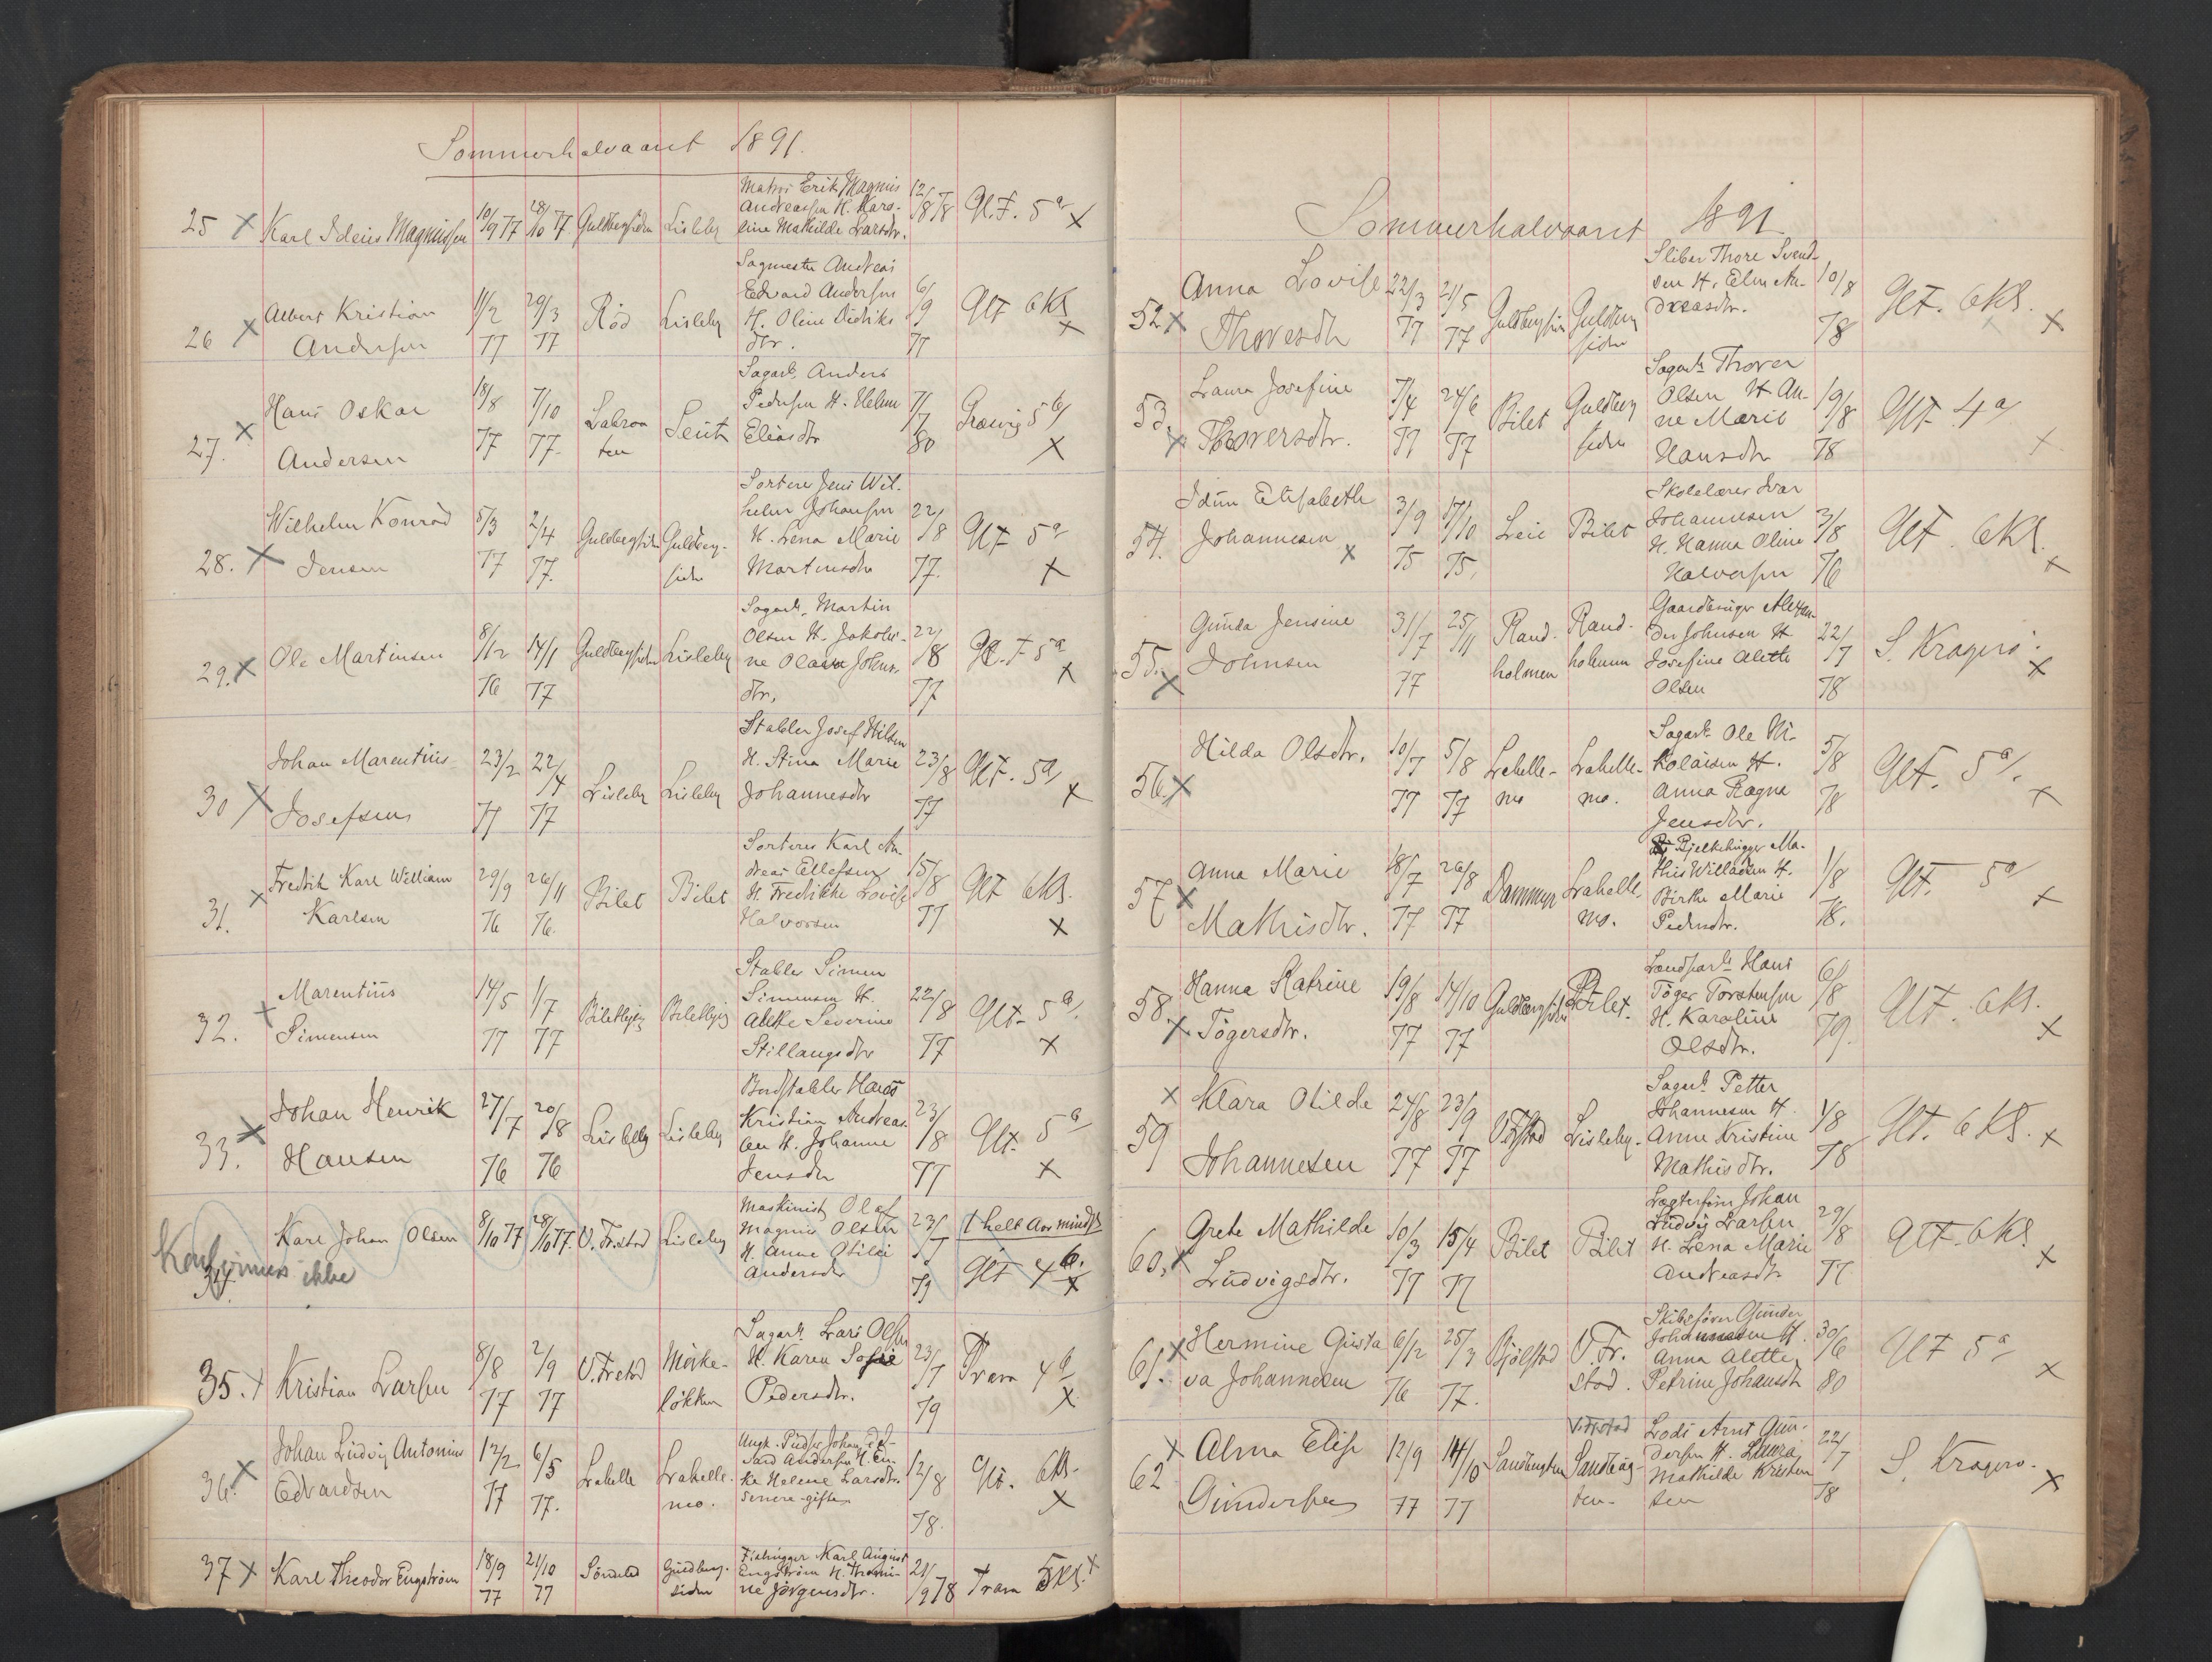 Sommerhalvaaret 1891.
25 X Karl Ideus Magnussen 10/9 77 28/10 77 Guldbergsiden Lisleby
Matros Erik Magnus
Andreassen H. Karo-
line Mathilde Larsdtr.
12/8 78 Glt. 5a X
26 X Albert Kristian
Andersen
11/2 77 29/3 77 Röd Lisleby
Sagmester Andreas
Edvard Andersen
H. Oline Didriks
dtr.
6/9 77 Glt 6 Kl X
27. X Hans Oskar
Andersen
18/8 77 7/10 77. Seut
Sagarb. Anders
Pedersen H. Helene
Eliasdtr
7/7 80 Græsvig 5b X
28. X Wilhelm Konrad
Jensen
5/3 77 2/4 77. Guldbergsiden Guldberg-
siden
Sorterer Jens Wil-
helm Johansen
H. Lena Marie
Martinsdtr
22/8 77. Glt 5a X
29. X Ole Martinsen
8/12 76 14/1 77 Guldbergsiden Lisleby
Sagarb. Martin
Olsen H. Jakobi-
ne Olava Johns-
dtr.
22/8 77 Gl.t 5a X
30 X Johan Marentius
Josefsen
23/2 77 22/4 77 Lisleby Lisleby
Stabler Josef Nilsen
H. Stina Marie
Johannesdtr
23/8 77 Glt. 5a X
31. X Fredrik Karl William
Karlsen
29/9 76 26/11 76. Bilet Bilet
Sorterer Karl An-
dreas Ellefsen
H. Fredrikke Lovise
Halvorsen
15/8 77 Glt 6 Kl. X
32. X Marentius
Simensen
14/5 77 1/7 77
Stabler Simen
Simensen H.
Alette Severine
Stillaugsdtr
22/8 77 Glt. 5b. X
33. X Johan Henrik
Hansen
27/7 76 20/8 76 Lisleby Lisleby
Bordstabler Hans
Kristian Andreas-
sen H. Johanne
Jensdtr
23/8 77 Glt. 5a X
Konfirmeres ikke
34. Karl Johan Olsen 8/10 77 28/10 77. V. Fr.stad Lisleby
Maskinist Olaf
Magnus Olsen
H. Anne Otilie
Andersdtr
23/7 79 1 helt Aar mindst
Glt 4 b. X
35. X Kristian Larsen
8/8 77 2/9 77 V. Fr.stad Mørke-
løkken
Sagarb. Lars Olsen
H. Karen Sofie
Pedersdtr.
23/7 79 Trara 4b X
36. X Johan Ludvig Antonius
Edvardsen
12/2 77 6/5 77. Labelle Labelle-
mo.
Ungk. Pudser Johan Ed-
vard Andersen H. En-
ke Helene Larsdtr.
senere gifte
12/8 78. Glt. 6 Kl. X
37 X Karl Theodor Engström
18/9 77 21/10 77 Guldberg-
siden
Karl August
Engström H. Thomi-
ne Jörgensdtr.
21/9 78 Trara 5 Kl. X
Sommerhalvaaret 1891
52 X Anna Lovise
Thoresdtr
22/3 77 21/5 77 Guldbergsiden Guldberg
siden
Sliber Thore Svend-
sen H. Elen An-
dreasdtr.
10/8 78 Glt. 6 Kl. X
53. X Laura Josefine
Thoversdtr.
7/4 77 24/6 77 Bilet Guldberg
siden
Sagarb. Thover
Olsen H An-
ne Marie
Hansdtr
19/8 78 Glt 4a X
54. Idun Elisabeth
Johannesen X
3/9 75 17/10 75. Leie Bilet
Skolelærer Ivar
Johannesen
H. Hanna Oline
Halvorsen
3/8 76 Glt. 6 Kl. X
55. X Gunda Jensine
Johnsen
31/7 77 25/11 Rand-
holmen Rand-
holmen
Gaardbruger Alexan-
der Johnsen H
Josefine Alette
Olsen
22/7 78 S. Kragerö. X
56. X Hilda Olsdtr.
10/7 77 5/8 77 Labelle-
mo Labelle-
mo.
Sagarb. Ole Ni-
kolaisen H.
Anna Ragna
Jensdtr.
5/8 78 Glt. 5a. X
57 X Anna Marie
Mathisdtr.
18/7 77 26/8 77 Dammyr Labelle
mo.
Bjelkehugger Ma-
this Willadsen H.
Birthe Marie
Pedersdtr.
1/8 78. Glt. 5a X
58. X Hanna Katrine
Tögersdtr.
19/8 77 14/10 77 Guldbergsiden Bilet.
Landharb. Hans
Töger Torstensen
H. Karoline
Olsdtr.
6/8 79. Glt. 6 Kl. X
59 X Klara Otilde
Johannesen
24/8 77 23/9 77 V. Fr.stad Lisleby.
Sagarb. Petter
Johannesen H.
Anne Kristine
Mathisdtr.
1/8 78 Glt. 6 Kl. X
60. X Grete Mathilde
Ludvigsdtr.
10/3 77 15/4 77 Bilet Bilet
Lægterfører Johan
Ludvig Larsen
H. Lena Marie
Andreasdtr
29/8 77 Glt. 6 Kl. X
61. X Hermine Gusta
va Johannesen
6/12 76 25/3 77. Bjölstad V. Fr.
stad.
Skibsfører Gunder
Johannesen H.
Anna Alette
Petrine Johansdtr
30/6 80 Glt 5a X
62 X Alma Elise
Gundersen
12/9 77 14/10 77 V. Fr.stad
Lods Arnt Gun-
dersen H. Laura
Mathilde Kristen
sen
22/7 78 S. Kragerö. X